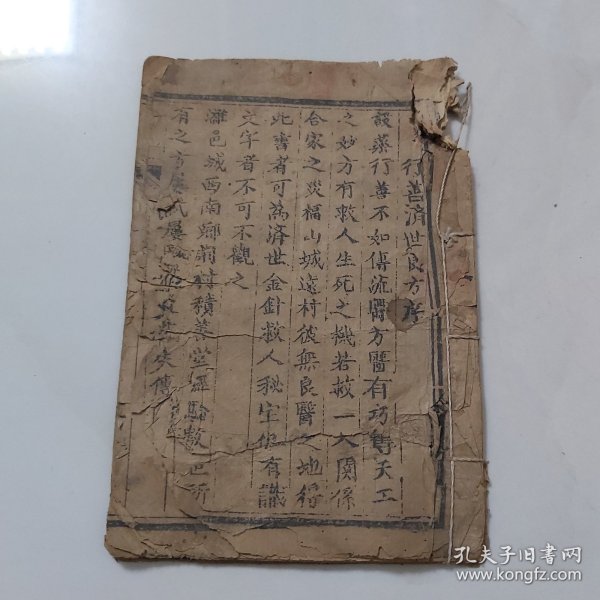 行善濟世良方序
設藥行善不如傳流醫方醫有巧奪天工
之妙方有救人生死之機若救一人關係
合家之災福山城遠村彼無良醫之地得
此書者可為済世金針救人秘宝但有識
文字者不可不觀之
濰邑城西南鄉前村積善堂經驗数世所
有之方屡試屡驗
孔夫子旧书网
www.kongfz.com